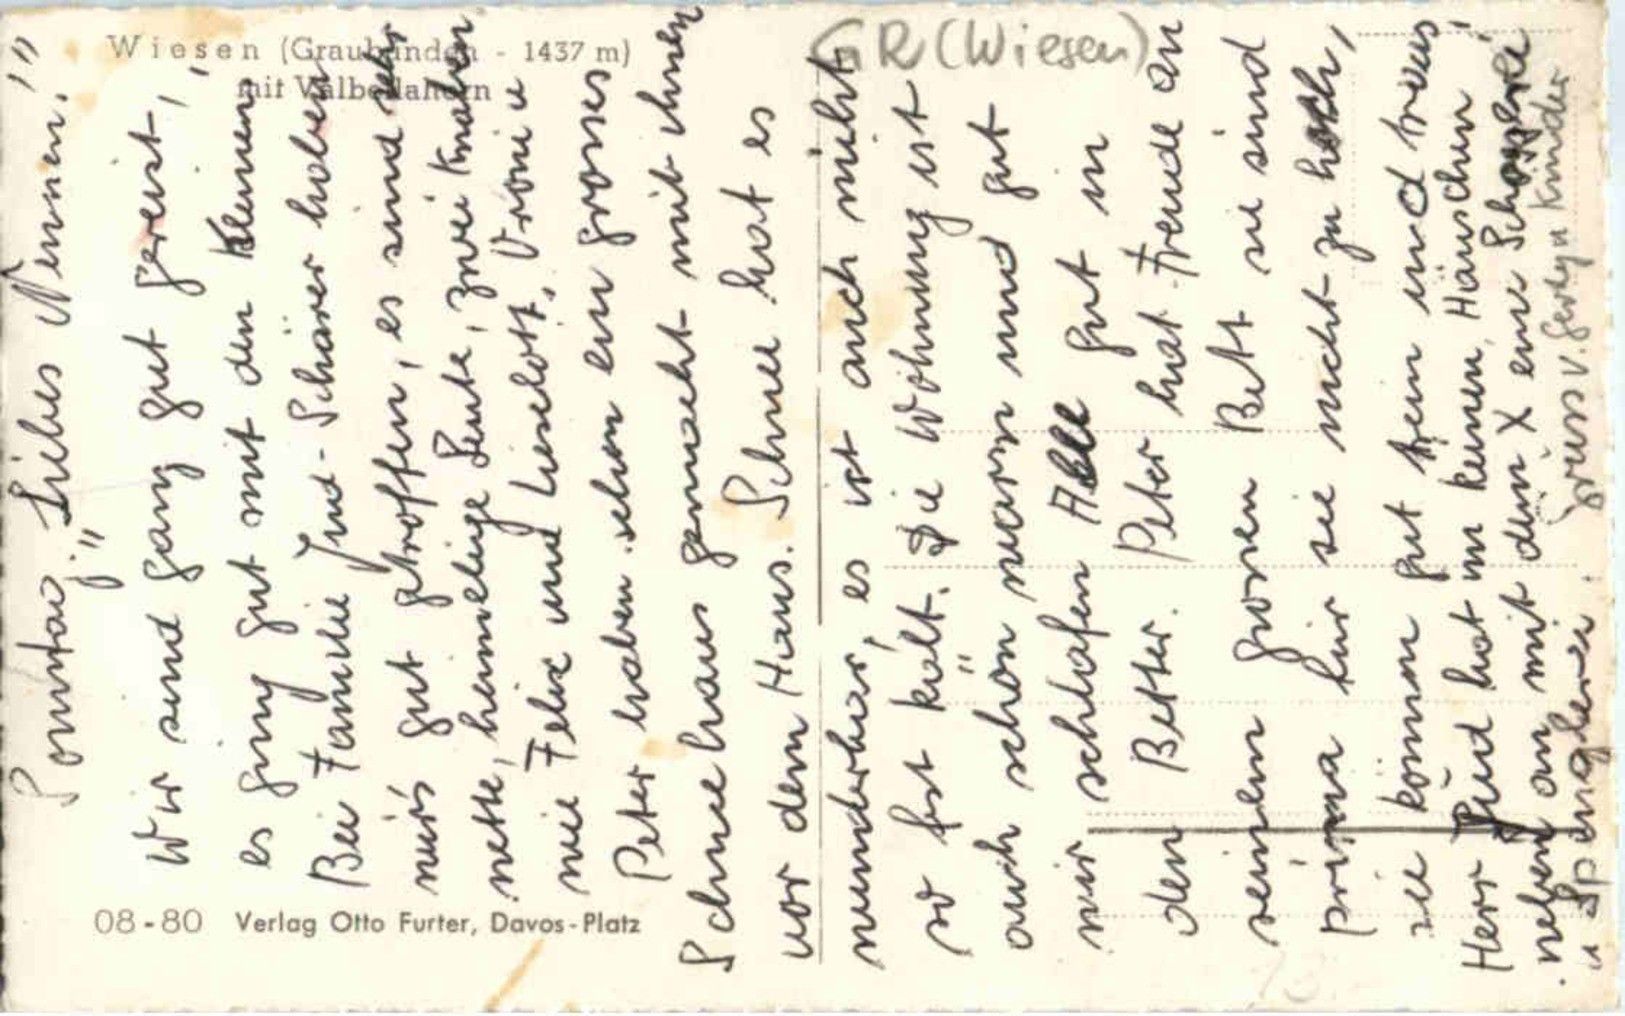 Wiesen (Graubünden - 1437 m)
mit Valbellahorn
GR (Wiesen)
Sonntag. Liebes Nennen.
Wir sind ganz gut gereist,
es ging gut mit den Kleinen.
Bei Familie Jud-Schärer haben
wirs gut getroffen, es sind sehr
nette, heimelige Leute, zwei Knaben
wie Felix und Lieselott, Vroni u
Peter haben schon ein grosses
Schneehaus gemacht mit ihnen
vor dem Haus. Schnee hat es
wunderbar, es ist auch nicht
so fest kalt. Die Wohnung ist
auch schön warm und gut
wir schlafen Alle gut in
den Better. Peter hat Freude an
seinem grossen Bett sie sind
prima hier sie nicht zu hoch,
sie können gut rein und raus
Herr Jud hat im kleinen Häuschen
neben an mit dem X eine Schosserei
u Spenglerei. Gruss v. Gerly u Kinder
08-80 Verlag Otto Furter, Davos-Platz